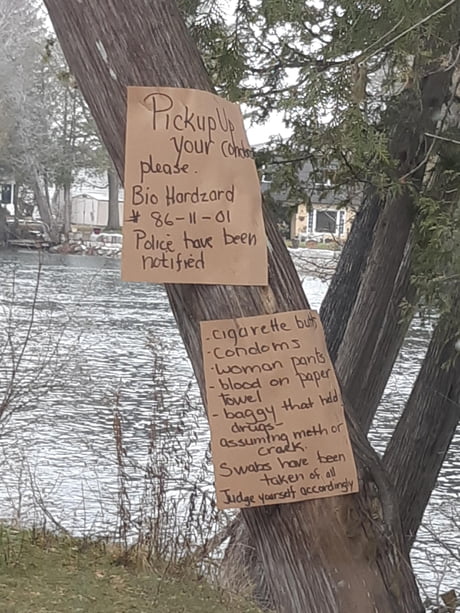 Pickup Up
your condoms
please.
Bio Hardzard
# 86-11-01
Police have been
notified
- cigarette butts
- condoms
- woman pants
- blood on paper
towel
- baggy that held
drugs -
assuming meth or
crack.
Swabs have been
taken of all
Judge yourself accordingly